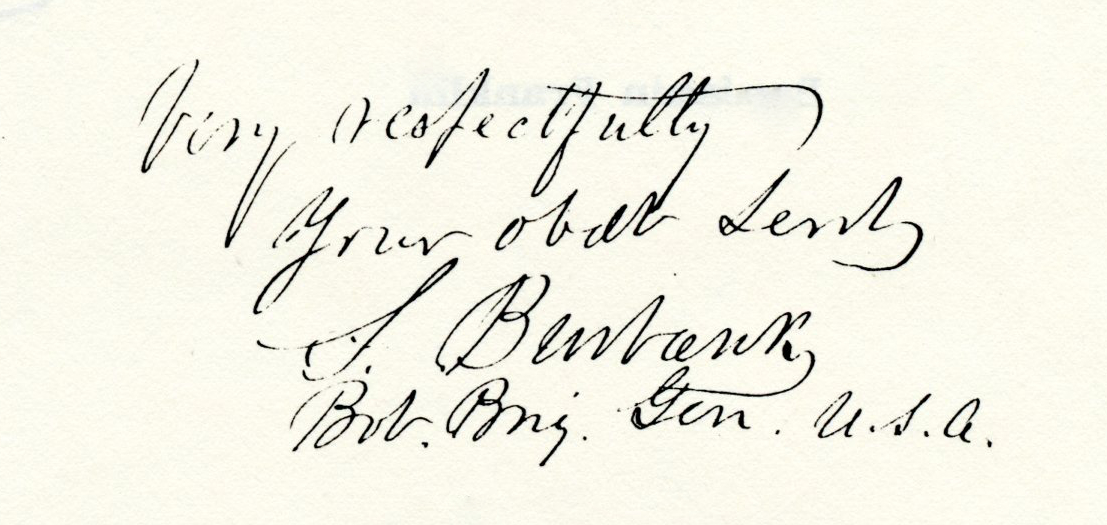 Very respectfully
Your obdt Servt
S. Burbank
Bvt. Brig. Gen. U.S.A.